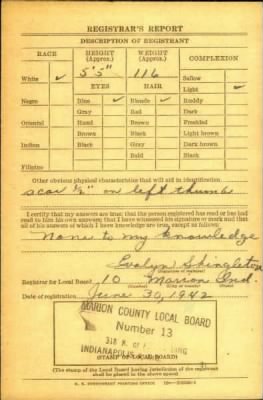 REGISTRAR'S REPORT
DESCRIPTION OF REGISTRANT
RACE
HEIGHT
(Approx.)
WEIGHT
(Approx.)
COMPLEXION
5'5" 116
White ✓ Sallow
EYES HAIR Light ✓
Negro Blue ✓ Blonde ✓ Ruddy
Gray Red Dark
Oriental Hazel Brown Freckled
Brown Black Light brown
Indian Black Gray Dark brown
Bald Black
Filipino
Other obvious physical characteristics that will aid in identification
scar ½" on left thumb
I certify that my answers are true; that the person registered has read or has had
read to him his own answers; that I have witnessed his signature or mark and that
all of his answers of which I have knowledge are true, except as follows:
None to my Knowledge
Evalyn Shingleton
(Signature of registrar)
Registrar for Local Board 10 Marion Ind
(Number) (City or county)
Date of registration June 30, 1942
MARION COUNTY LOCAL BOARD
Number 13
318 N.
INDIANAPOLIS
(STAMP OF LOCAL BOARD)
(The stamp of the Local Board having jurisdiction of the registrant
shall be placed in the above space)
U. S. GOVERNMENT PRINTING OFFICE